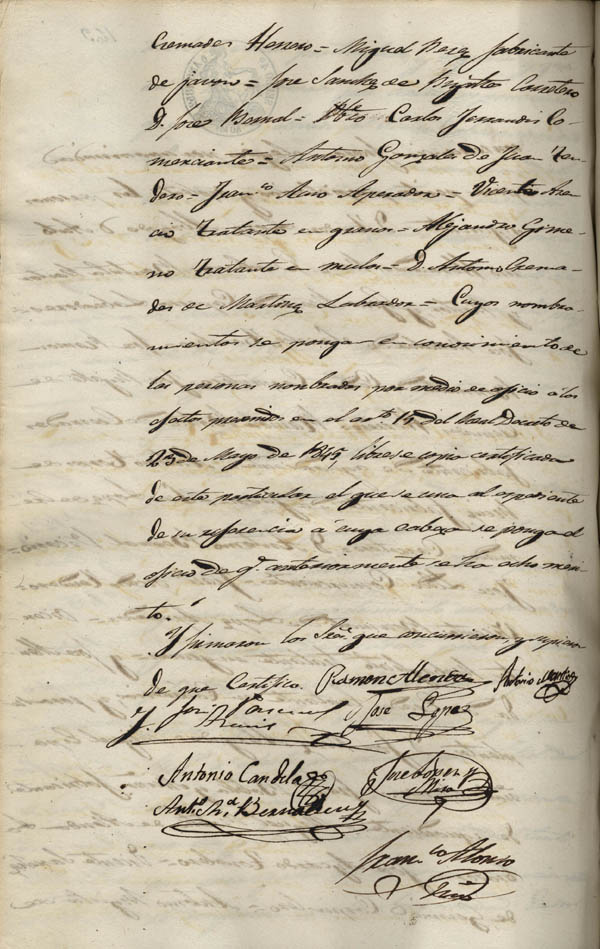 Cremades Herrero = Miguel Perez fabricante
de javon = Jose Sanchez de Carretero
D. Jose Bernal = Carlos Fernandez Co-
merciante = Antonio Gonzales de Juan Ten-
dero = Fran.co Aperador = Vicente Asen-
cio Tratante en granos = Alejandro Gime-
no Tratante en mulos = D. Antonio Crema-
des de Martinez Labrador = Cuyos nombra-
mientos se pongan en conocimiento de
las personas nombradas por medio de oficio á los
efectos prevenidos en el art.o 15 del Real Decreto de
23 de Mayo de 1845, librese copia certificada
de este particular el que se una al espediente
de su referencia á cuya cabeza se ponga el
oficio de q.e anteriormente se ha echo meri-
to.
Y firmaron los Señ.s que concurrieron, y supieron
de que Certifico. Ramon Alemda Antonio Martinez
José Pascual Jose Lopez
Antonio Candela Jose Lopez y
Ant.o M.a Bernabeu Miro
Fran.co Alonso